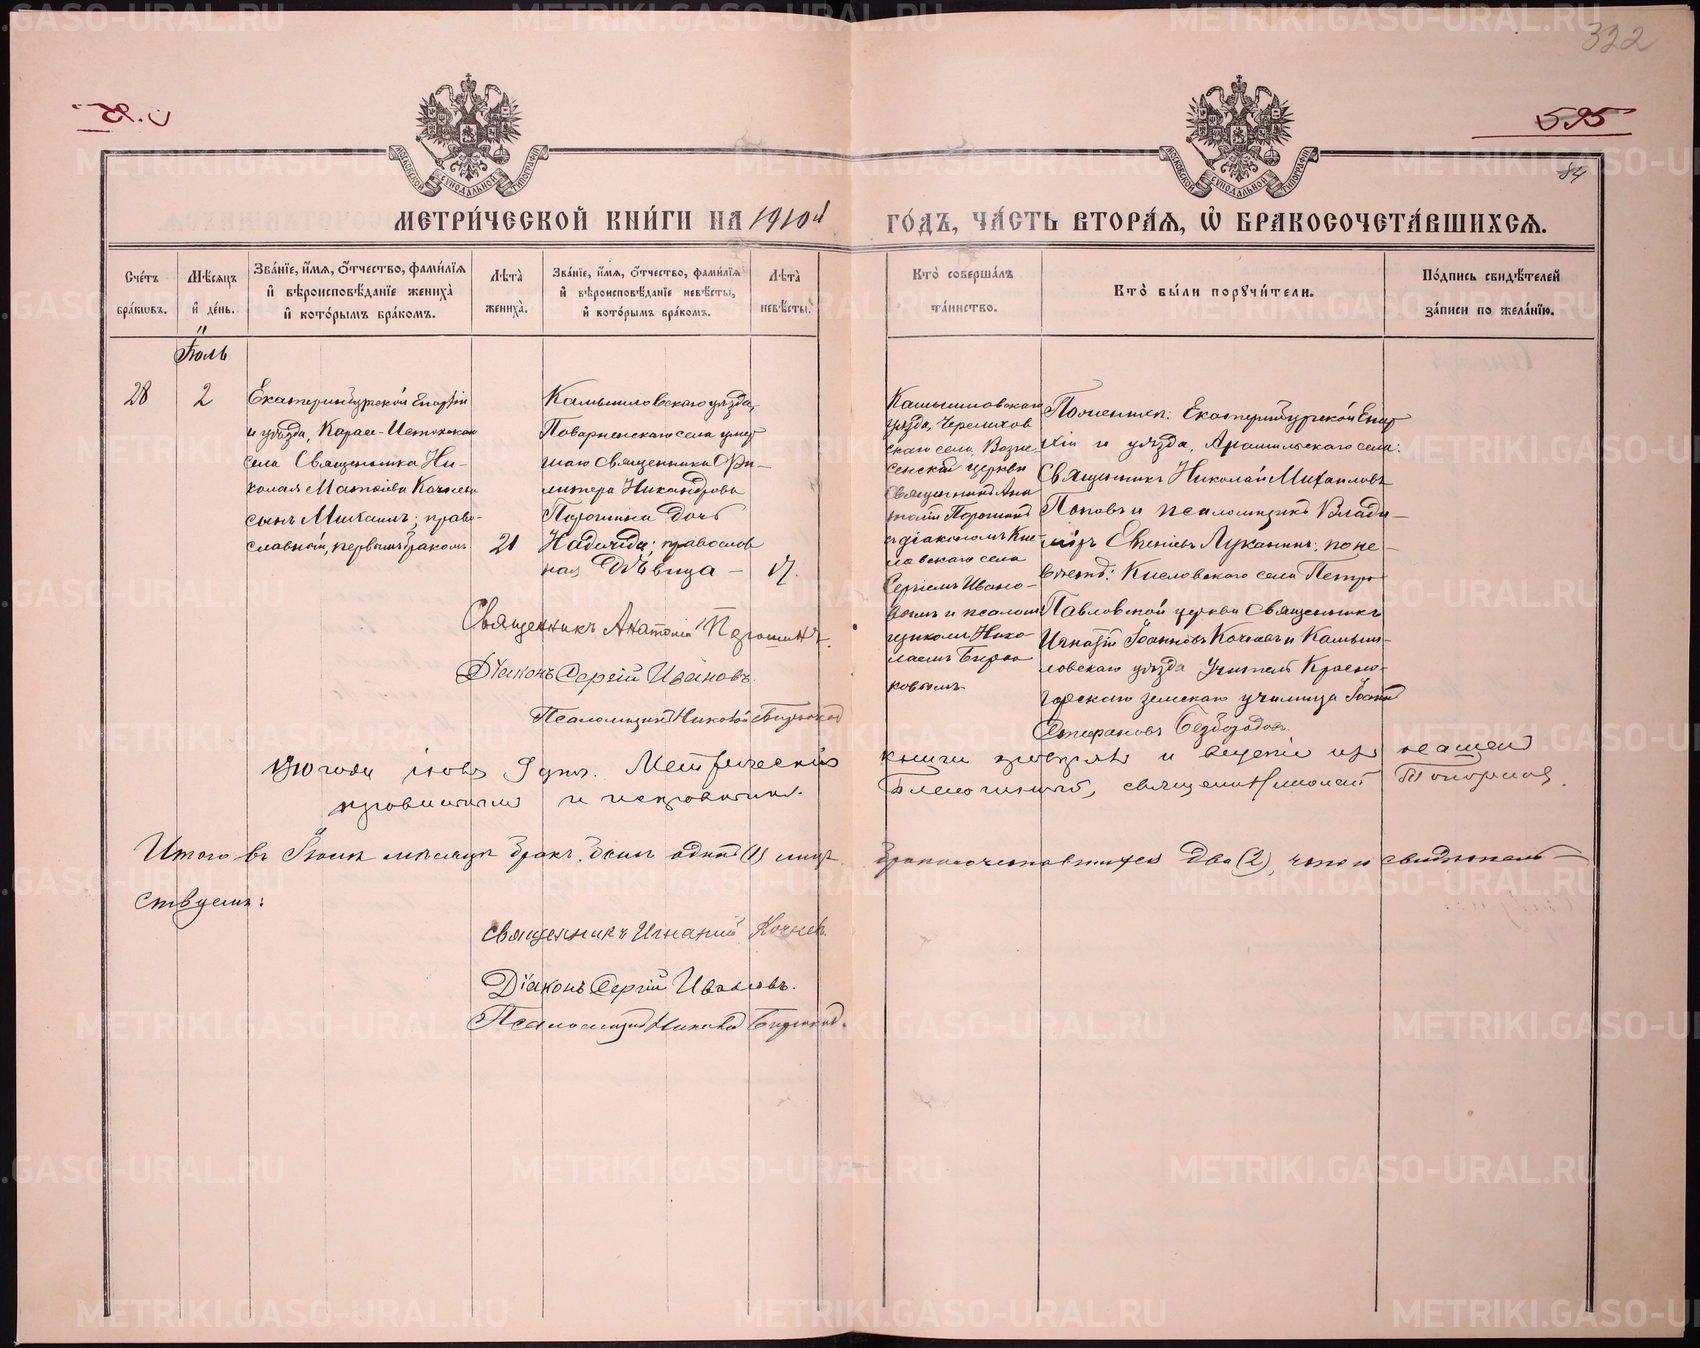 322
595
84
МОСКОВСКОЙ СѴНОДАЛЬНОЙ ТИПОГРАФІИ
МОСКОВСКОЙ СѴНОДАЛЬНОЙ ТИПОГРАФІИ
МЕТРИ́ЧЕСКОЙ КНИ́ГИ НА 1910й
ГО́ДЪ, ЧА́СТЬ ВТОРА́Ѧ, Ѽ БРАКОСОЧЕТА́ВШИХСѦ.
Сче́тъ бра́кѡвъ.
Мѣ́сѧцъ и҆ де́нь.
Зва́нїе, и҆́мѧ, ѻ҆́тчество, фами́лїѧ и҆ вѣроисповѣ́данїе жениха̀ и҆ кото́рымъ бра́комъ.
Лѣ́та̀ жениха̀.
Зва́нїе, и҆́мѧ, ѻ҆́тчество, фами́лїѧ и҆ вѣроисповѣ́данїе невѣ́сты, и҆ кото́рымъ бра́комъ.
Лѣ́та̀ невѣ́сты.
Кто̀ соверша́лъ та́инство.
Кто̀ бы́ли порꙋчи́тели.
По́дпись свидѣ́телей за́писи по жела́нїю.
Іюль
28
2
Екатеринбургской Епархіи
и уѣзда, Карасье-Истокскаго
села Священника Ни-
колая Матѳіева Кочнева
сынъ Михаилъ; право-
славный, первымъ бракомъ
21
Камышловскаго уѣзда,
Поварненскаго села умер
шаго Священника
Никандрова
Порошина дочь
Надежда; православ
ная дѣвица –
17.
Камышловскаго
уѣзда,
скаго села, Возне-
сенской церкви
Священникъ Ана
толій Порошинъ
съ діакономъ Кис-
ловскаго села
Сергіемъ Ивано-
вымъ и псалом
щикомъ Нико
лаемъ Бирю
ковымъ
По женихѣ: Екатеринбургской Епар
хіи и уѣзда, Арамильскаго села:
Священникъ Николай Михайловъ
Поповъ и псаломщикъ Влади-
міръ Евгеніевъ Луканинъ; по не-
вѣстѣ: Кисловскаго села Петро
Павловской церкви Священникъ
Игнатій Іоанновъ Кочневъ и Камыш-
ловскаго уѣзда Учитель Красно-
горскаго земскаго училища Іоаннъ
Стефановъ Безбородовъ.
Священникъ Анатолій Порошинъ.
Діаконъ Сергій Ивановъ.
Псаломщикъ Николай Бирюковъ
1910 года іюля 9 дня. Метрическія книги
Благочинный, священникъ Николай Топорковъ.
Итого въ Іюлѣ мѣсяцѣ брак. было одинъ (1) лицъ бракосочетавшихся два (2), чего и свидѣтель-
ствуемъ:
Священникъ Игнатій Кочневъ.
Діаконъ Сергій Ивановъ.
Псаломщикъ Николай Бирюковъ.
METRIKI.GASO-URAL.RU